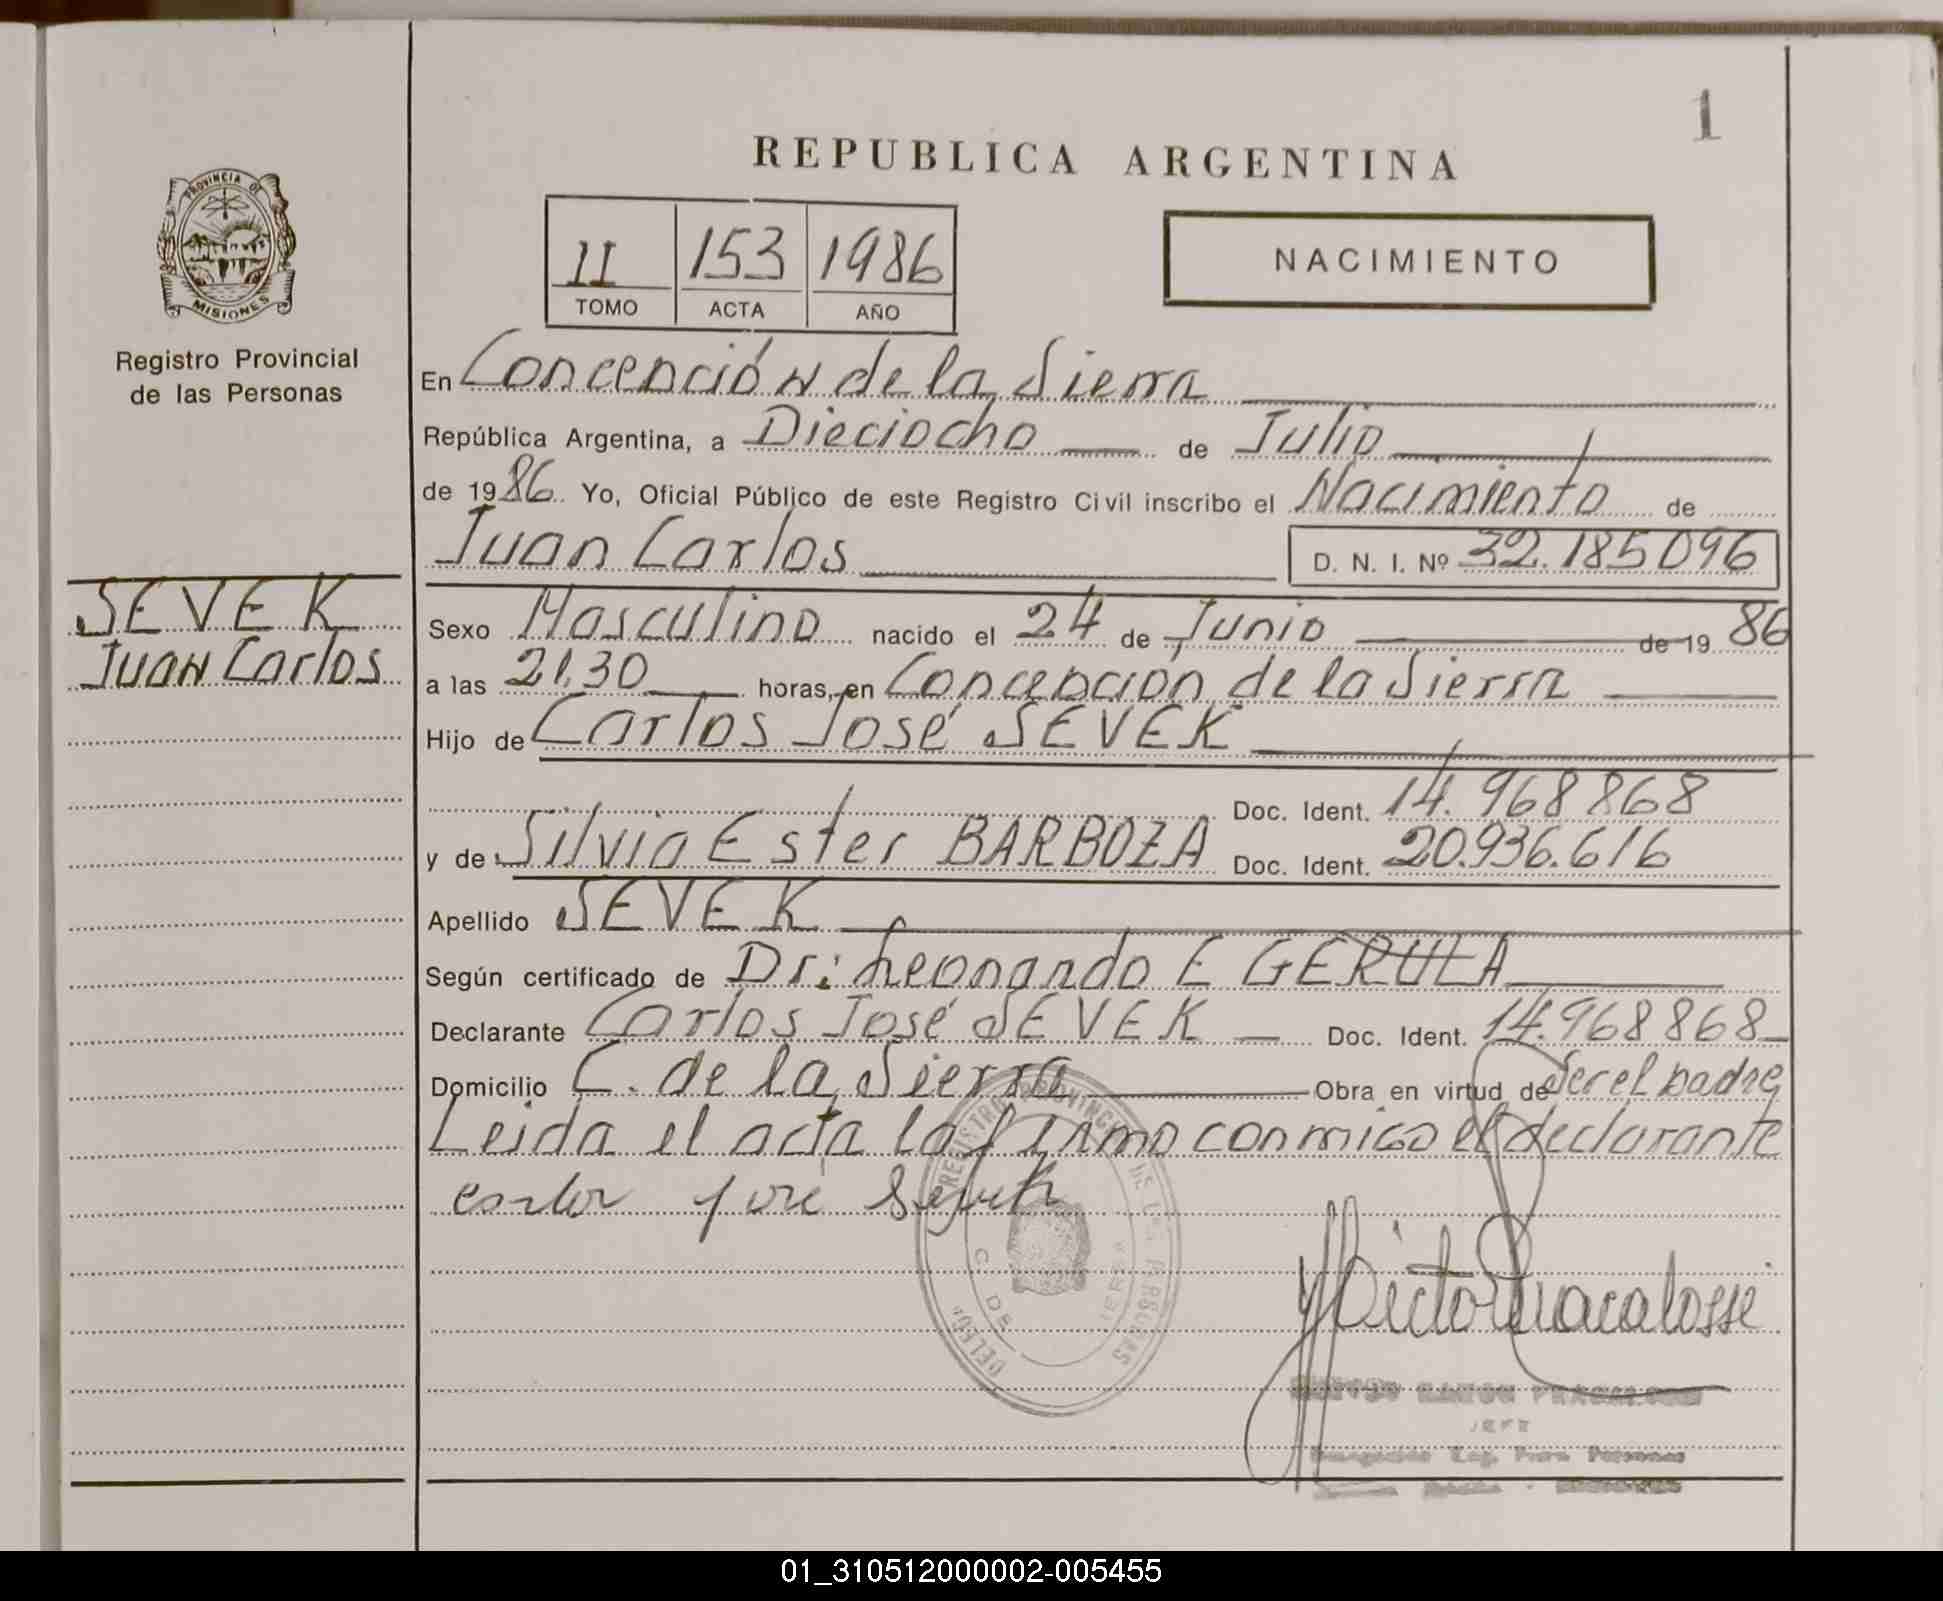 1
REPUBLICA ARGENTINA
PROVINCIA DE
MISIONES
Registro Provincial
de las Personas
II 153 1986
TOMO ACTA AÑO
NACIMIENTO
En Concepción de la Sierra
República Argentina, a Dieciocho de Julio
de 1986 Yo, Oficial Público de este Registro Civil inscribo el Nacimiento de
Juan Carlos D. N. I. Nº 32.185096
SEVEK
Juan Carlos
Sexo Masculino nacido el 24 de Junio de 19 86
a las 21.30 horas, en Concepcion de la Sierra
Hijo de Carlos José SEVEK
Doc. Ident. 14.968868
y de Silvia Ester BARBOZA Doc. Ident. 20.936.616
Apellido SEVEK
Según certificado de Dr: Leonardo E GERULA
Declarante Carlos José SEVEK Doc. Ident. 14.968868
Domicilio C. de la Sierra Obra en virtud de Ser el padre
Leida el acta la firma conmigo el declarante
Carlos José Sevek
REGISTRO PROVINCIAL DE LAS PERSONAS
JEFE
01_310512000002-005455